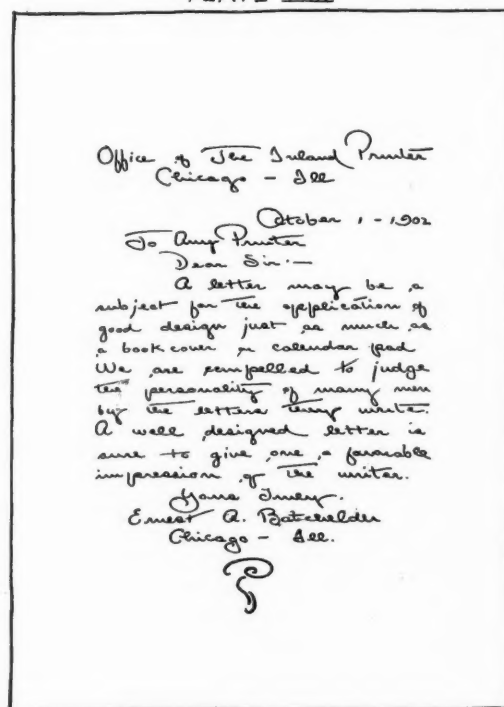 Office of The Inland Printer
Chicago - Ill
October 1 - 1902
To Any Printer
Dear Sir:—
A letter may be a
subject for the application of
good design just as much as
a book cover or calendar pad
We are compelled to judge
the personality of many men
by the letters they write.
A well designed letter is
sure to give one a favorable
impression of the writer.
Yours Truly.
Ernest A. Batchelder
Chicago - Ill.